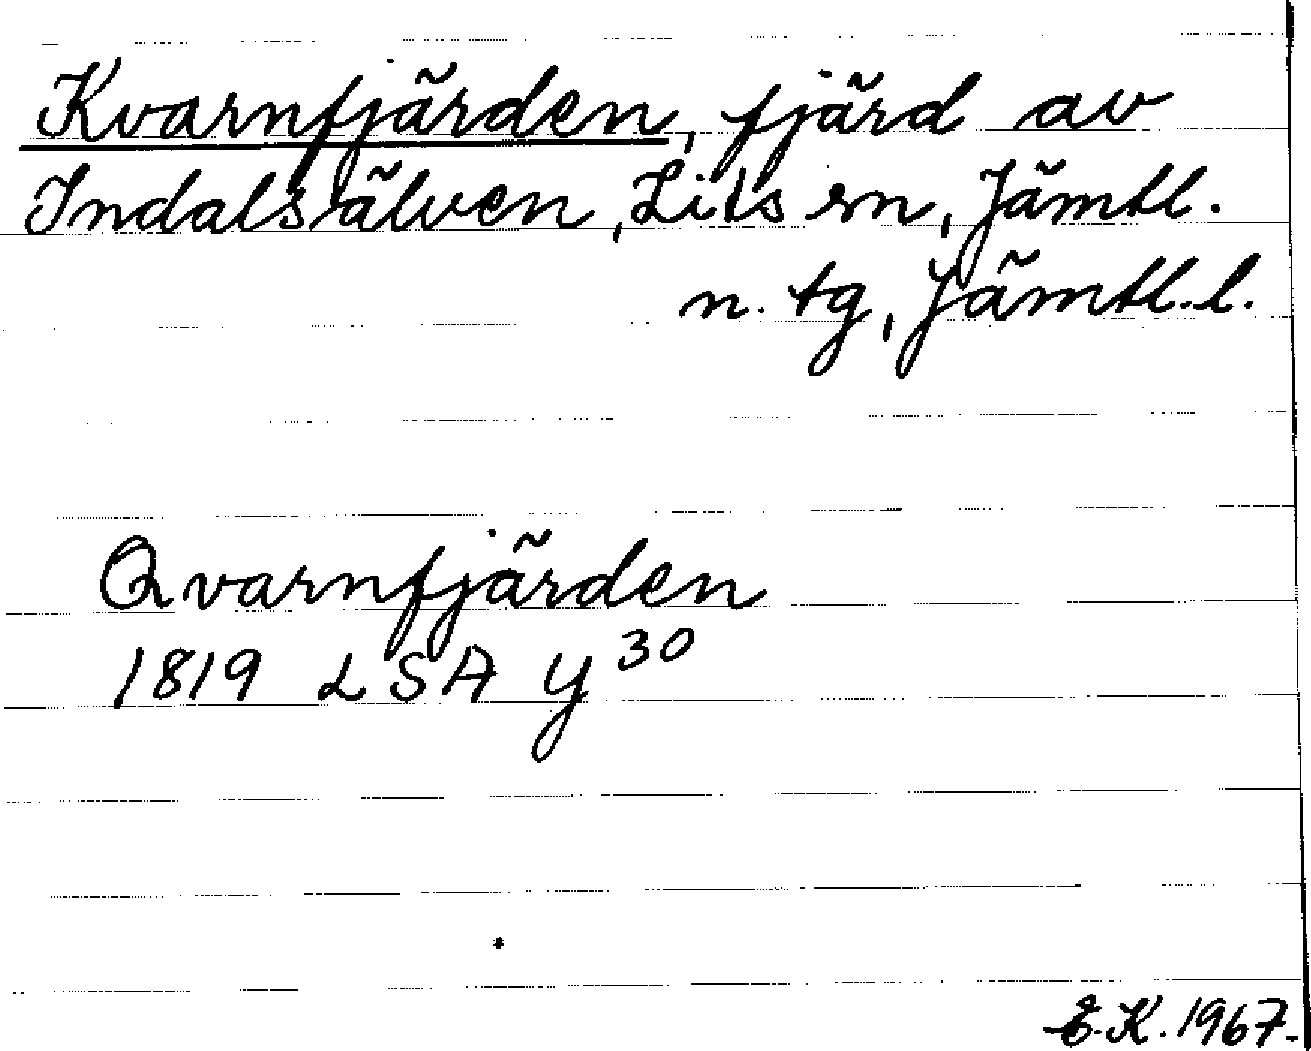 Kvarnfjärden, fjärd av
Indalsälven, Lits sn, Jämtl.
n. tg, Jämtl. l.
Qvarnfjärden
1819 LSA Y³⁰
E.K. 1967.